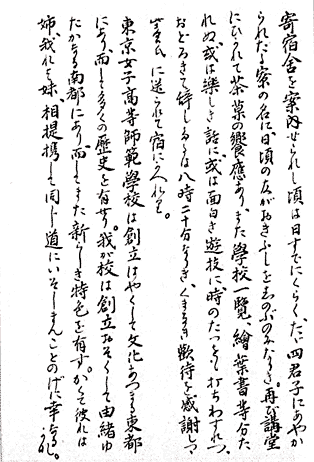 寄宿舎を案内せられし頃は日すでにくらく、たゞ四君子にあやか
られたる寮の名に、日頃の友がおきふしを志のぶのみなりき。再び講堂
にひかれて茶菓の饗應あり。また學校一覽、繪葉書等分た
れぬ。或は楽しき話に、或は面白き遊技に、時のたつをも打ちわすれつ、
おどろきて辞しゝは八時二十分なりき。くまなき歓待を感謝しつゝ
に送られて宿にかへれり。
東京女子高等師範學校は創立はやくして文化あつまる東都
にあり、而して多くの歴史を有せり。我が校は創立おそくして由緒ゆ
たかなる南都にあり、而してまた新しき特色を有す。かくて彼れは
姉、我れは妹、相提携して同じ道にいそしまんことのげに幸なる